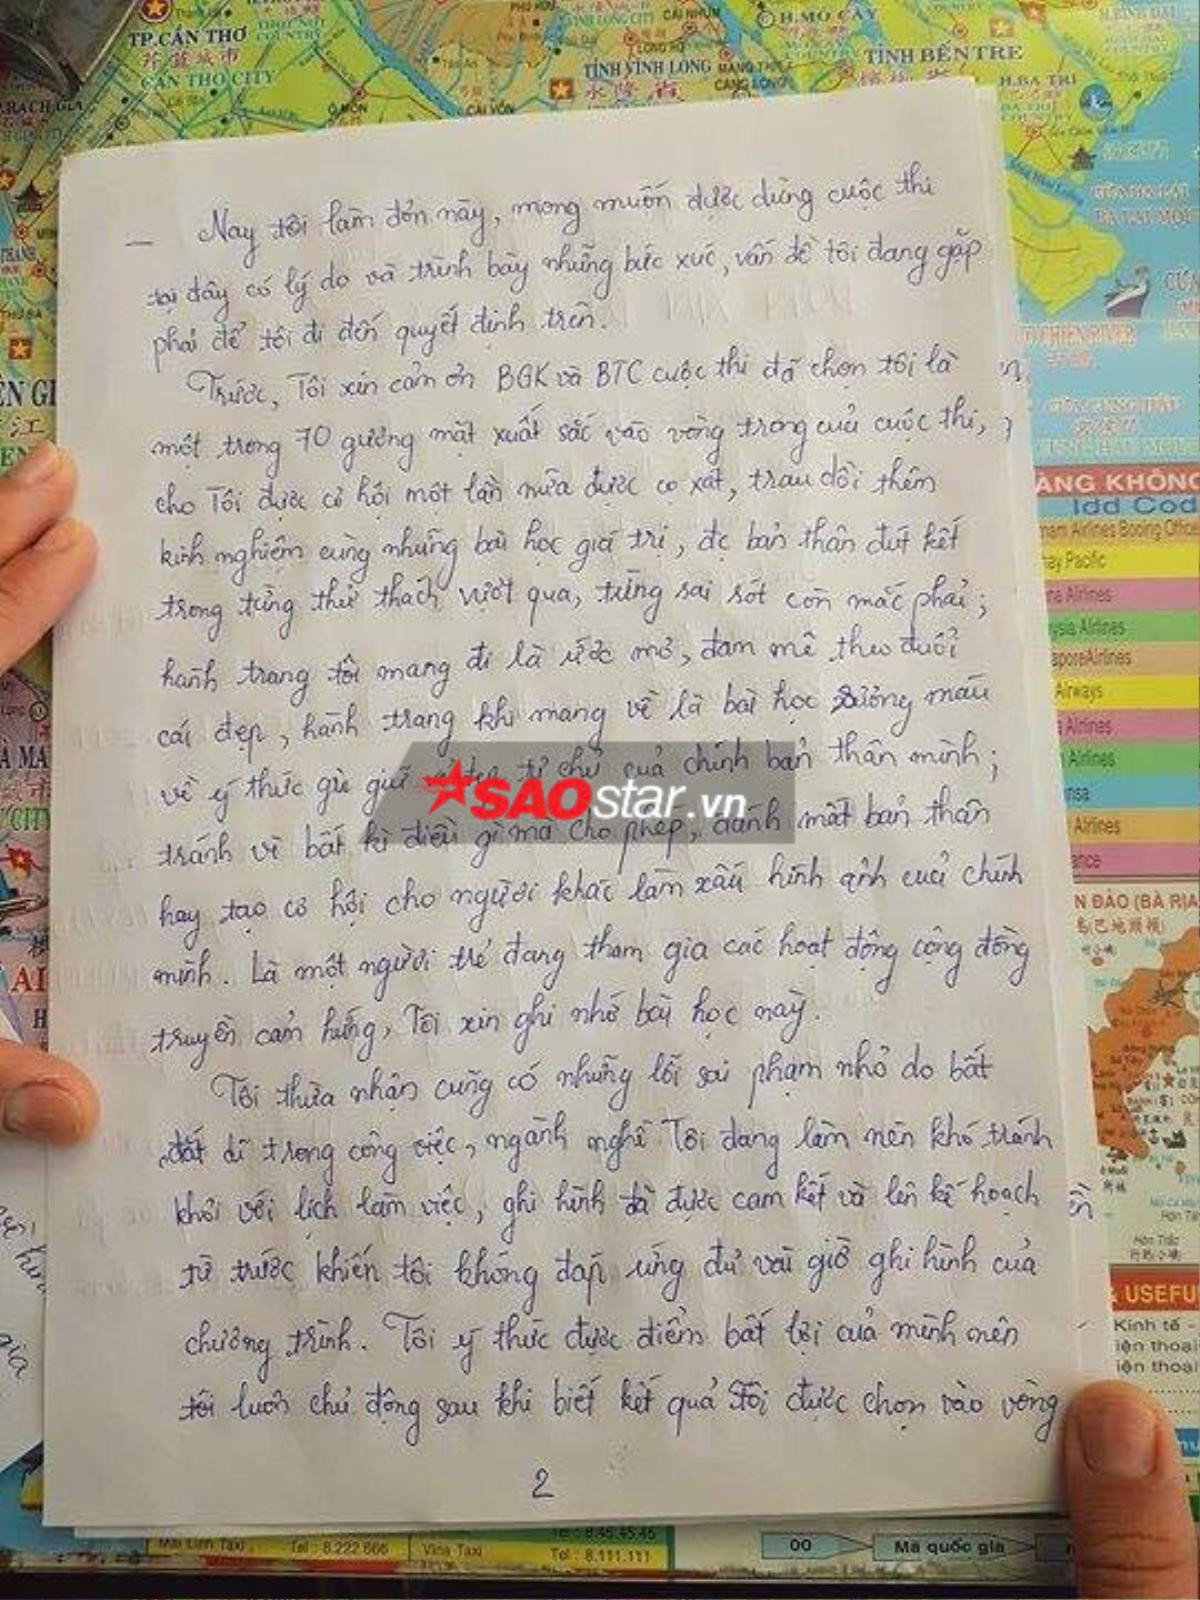 TP.CẦN THƠ
CẦN THƠ CITY
TỈNH VĨNH LONG
CÁI NHUM
LONG HỒ
CÀNG LONG
H.MỎ CÀY
TỈNH BẾN TRE
H.BA TRI
Ô MÔN
CÁI VỒN
— Nay tôi làm đơn này, mong muốn được dừng cuộc thi
tại đây có lý do và trình bày những bức xúc, vấn đề tôi đang gặp
phải để tôi đi đến quyết định trên.
Trước, Tôi xin cảm ơn BGK và BTC cuộc thi đã chọn tôi là
một trong 70 gương mặt xuất sắc vào vòng trong của cuộc thi,
cho Tôi được cơ hội một lần nữa được cọ xát, trau dồi thêm
kinh nghiệm cùng những bài học giá trị, đc bản thân đút kết
trong từng thử thách vượt qua, từng sai sót còn mắc phải;
hành trang tôi mang đi là ước mơ, đam mê theo đuổi
cái đẹp, hành trang khi mang về là bài học xương máu
về ý thức gìn giữ tự chủ của chính bản thân mình;
tránh vì bất kì điều gì mà cho phép, đánh mất bản thân
hay tạo cơ hội cho người khác làm xấu hình ảnh của chính
mình. Là một người trẻ đang tham gia các hoạt động cộng đồng
truyền cảm hứng, Tôi xin ghi nhớ bài học này.
Tôi thừa nhận cũng có những lỗi sai phạm nhỏ do bất
đắt dĩ trong công việc, ngành nghề Tôi đang làm nên khó tránh
khỏi với lịch làm việc, ghi hình đã được cam kết và lên kế hoạch
từ trước khiến tôi không đáp ứng đủ vài giờ ghi hình của
chương trình. Tôi ý thức được điểm bất lợi của mình nên
tôi luôn chủ động sau khi biết kết quả Tôi được chọn vào vòng
2
SAOstar.vn
ÀNG KHÔNG
Idd Cod
nam Airlines Booing Office
hay Pacific
Airlines
ysia Airlines
aporeAirlines
Airways
Airlines
Airlines
nsa
Airlines
ance
N ĐẢO (BÀ RỊA
& USEFU
Kinh tế -
iện thoại
iện thoại
Mai Linh Taxi
Tel : 8.222.666
Vina Taxi
Tel : 8.111.111
Tel : 8.45.45.45
00
Mã quốc gia